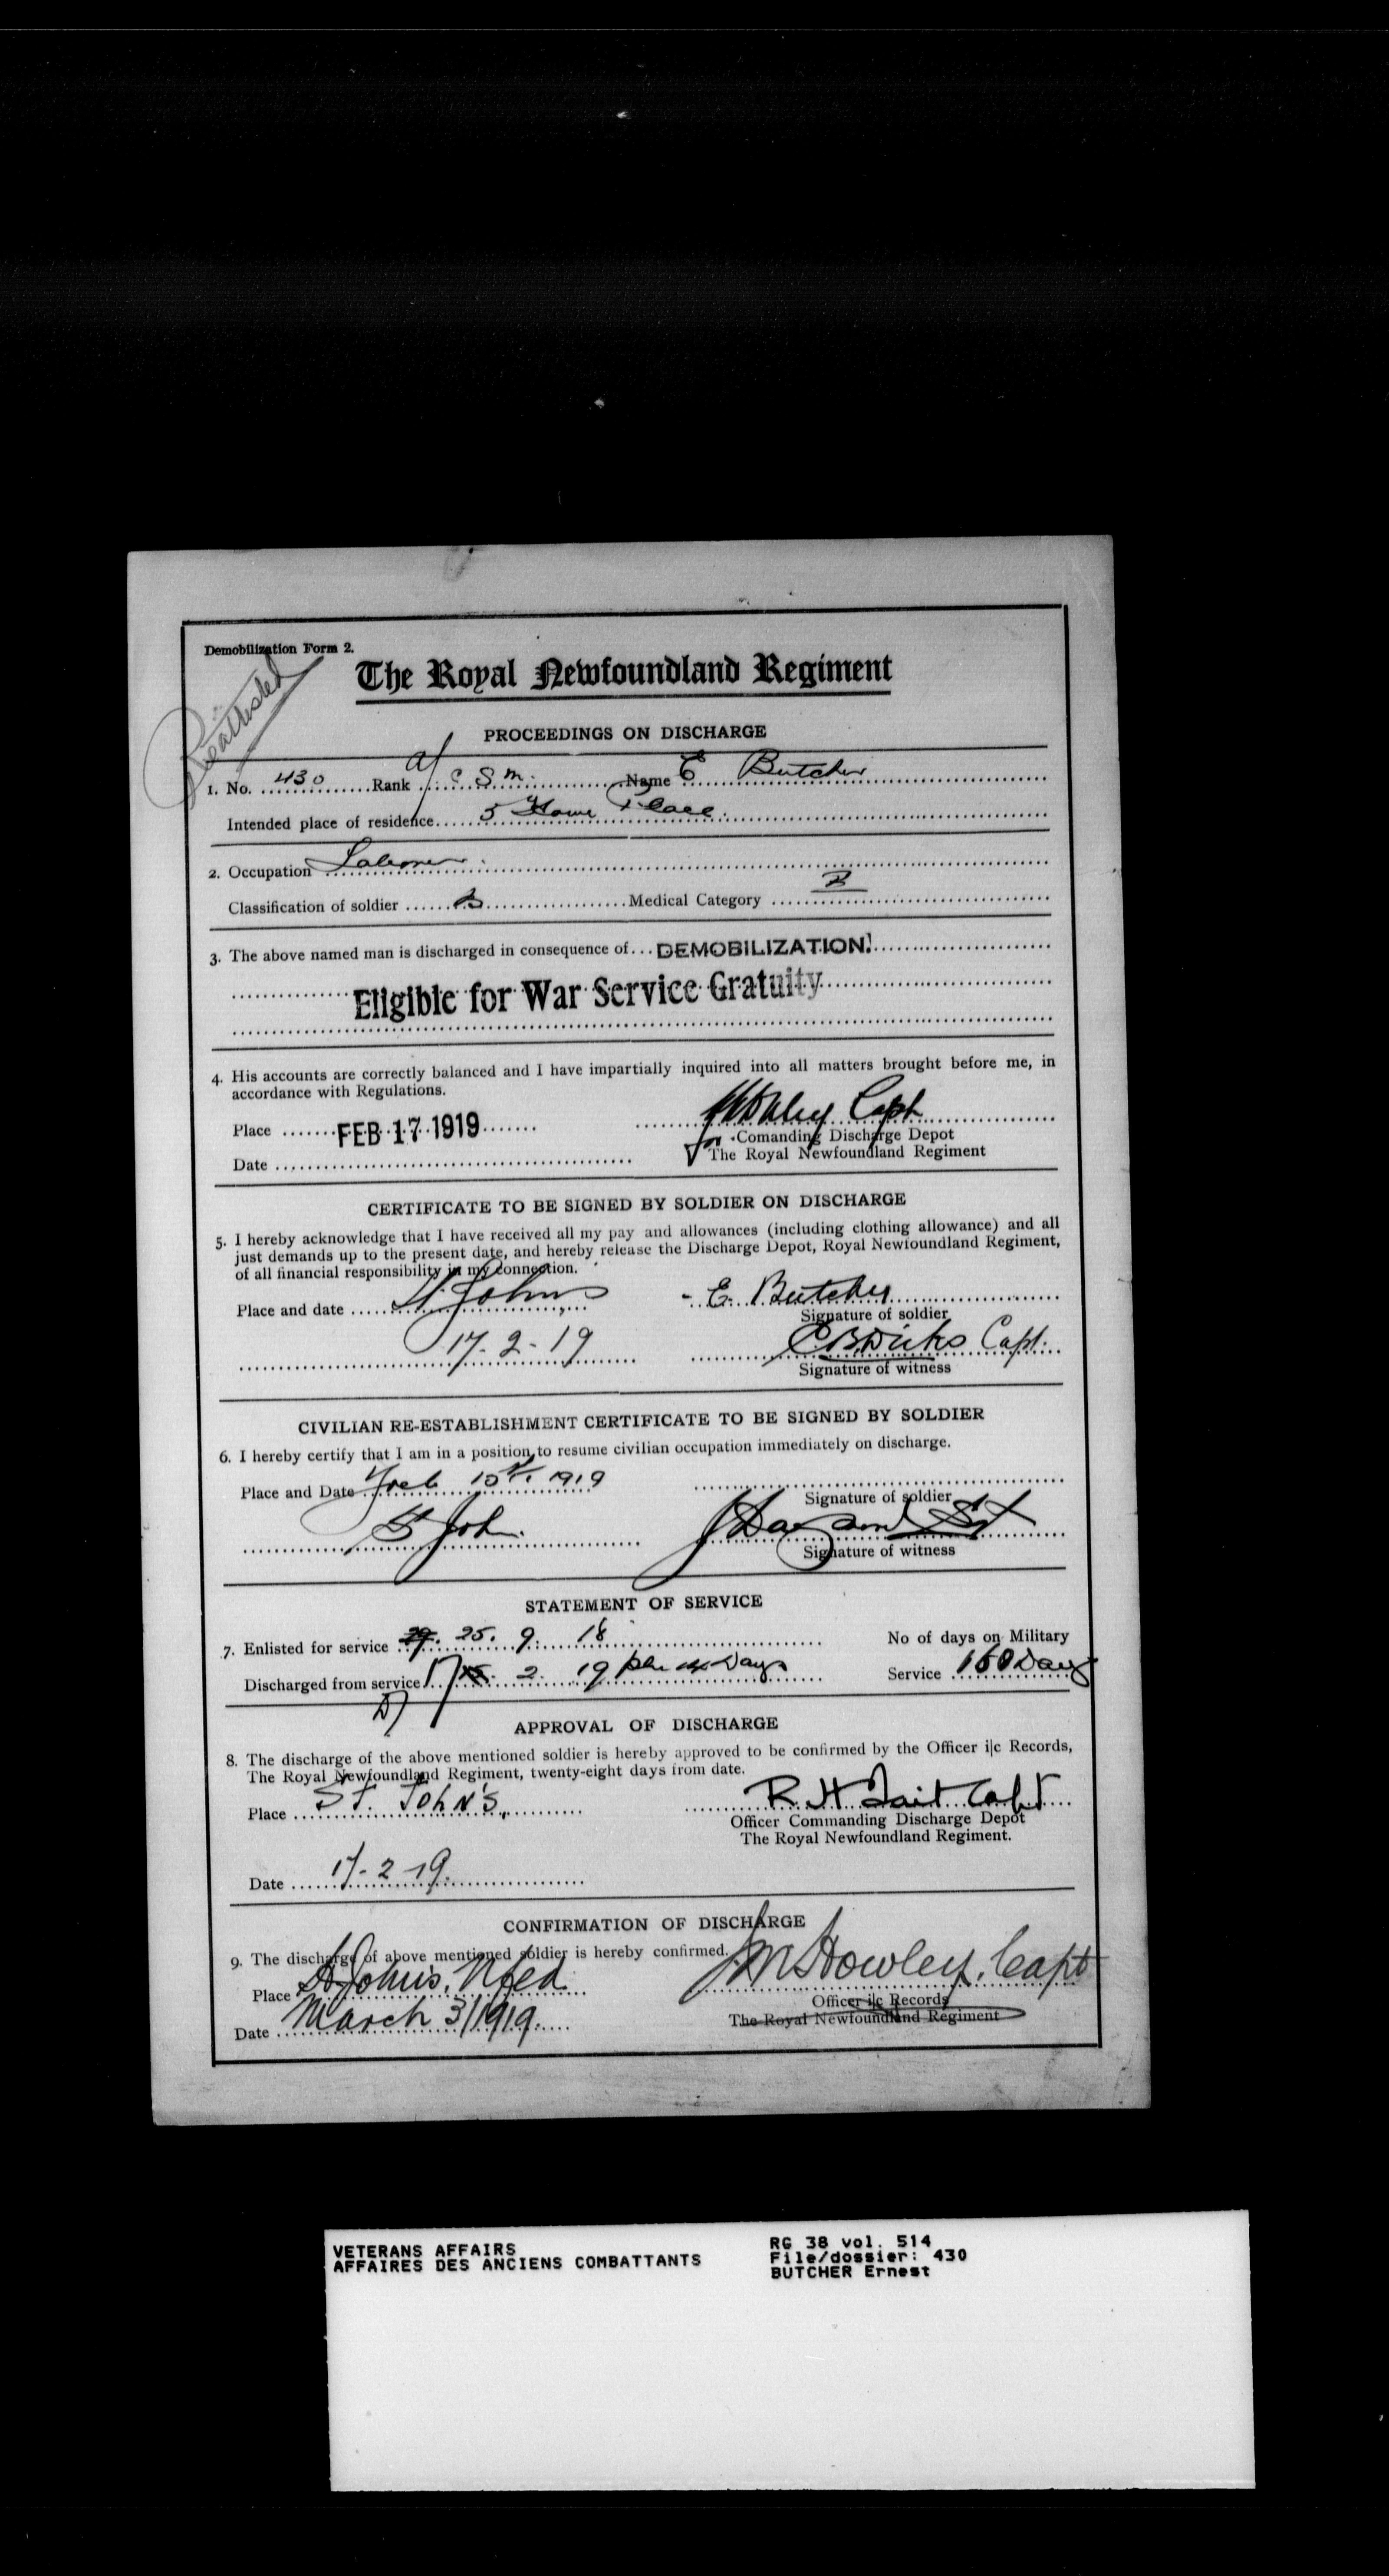 Demobilization Form 2.
Reattested
The Royal Newfoundland Regiment
PROCEEDINGS ON DISCHARGE
1. No. 430 Rank a/ C S M. Name E Butcher
Intended place of residence 5 Place.
2. Occupation Laborer
Classification of soldier B Medical Category
3. The above named man is discharged in consequence of DEMOBILIZATION.
Eligible for War Service Gratuity
4. His accounts are correctly balanced and I have impartially inquired into all matters brought before me, in
accordance with Regulations.
Capt
Place FEB 17 1919
for Comanding Discharge Depot
Date
The Royal Newfoundland Regiment
CERTIFICATE TO BE SIGNED BY SOLDIER ON DISCHARGE
5. I hereby acknowledge that I have received all my pay and allowances (including clothing allowance) and all
just demands up to the present date, and hereby release the Discharge Depot, Royal Newfoundland Regiment,
of all financial responsibility in my connection.
Place and date St Johns - E. Butcher
Signature of soldier
17-2-19 C B Dicks Capt.
Signature of witness
CIVILIAN RE-ESTABLISHMENT CERTIFICATE TO BE SIGNED BY SOLDIER
6. I hereby certify that I am in a position to resume civilian occupation immediately on discharge.
Place and Date Feb 1919
Signature of soldier
St John. Sgt
Signature of witness
STATEMENT OF SERVICE
7. Enlisted for service 25. 9. 18 No of days on Military
Discharged from service 17 2. 19 plus 14 Days Service 160 Days
APPROVAL OF DISCHARGE
8. The discharge of the above mentioned soldier is hereby approved to be confirmed by the Officer i|c Records,
The Royal Newfoundland Regiment, twenty-eight days from date.
Place St. John's, R. H. Tait Capt
Officer Commanding Discharge Depot
The Royal Newfoundland Regiment.
Date 17-2-19.
CONFIRMATION OF DISCHARGE
9. The discharge of above mentioned soldier is hereby confirmed.
Place St John's, Nfld J M Howley, Capt
Officer i|c Records
Date March 3/1919. The Royal Newfoundland Regiment
VETERANS AFFAIRS
AFFAIRES DES ANCIENS COMBATTANTS
RG 38 vol. 514
File/dossier: 430
BUTCHER Ernest